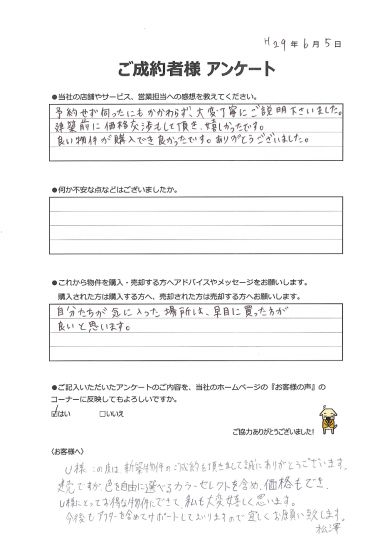 H29年6月5日
ご成約者様 アンケート
●当社の店舗やサービス、営業担当への感想を教えてください。
予約せず伺ったにもかかわらず、大変丁寧にご説明下さいました。
建築前に価格交渉もして頂き、嬉しかったです。
良い物件が購入でき良かったです。ありがとうございました。
●何か不安な点などはございましたか。
●これから物件を購入・売却する方へアドバイスやメッセージをお願いします。
購入された方は購入する方へ、売却された方は売却する方へお願いします。
自分たちが気に入った場所は、早目に買った方が
良いと思います。
●ご記入いただいたアンケートのご内容を、当社のホームページの『お客様の声』の
コーナーに反映してもよろしいですか。
☑はい □いいえ
ご協力ありがとうございました!
《お客様へ》
U様 この度は新築物件のご成約を頂きまして誠にありがとうございます。
建売ですが、色を自由に選べるカラーセレクトを含め、価格もでき、
U様にとってお得な物件にできて、私も大変嬉しく思います。
今後もアフターを含めてサポートしてまいりますので宜しくお願い致します。
松澤